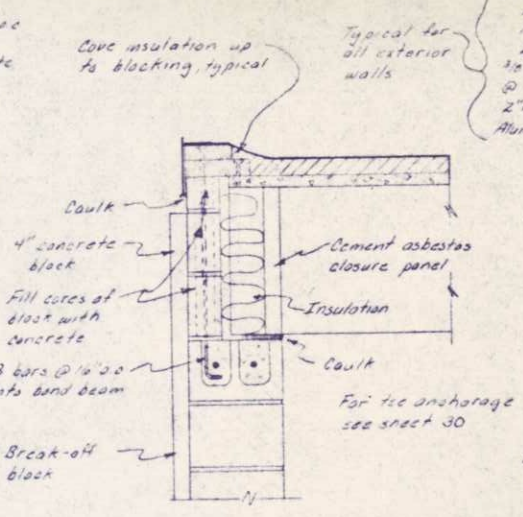 Cove insulation up
to blocking, typical
Typical for
all exterior
walls
@
2"
Caulk
4" concrete
block
Fill cores of
block with
concrete
bars @ 16" o.c
into bond beam
Break-off
block
Cement asbestos
closure panel
Insulation
Caulk
For tee anchorage
see sheet 30
N